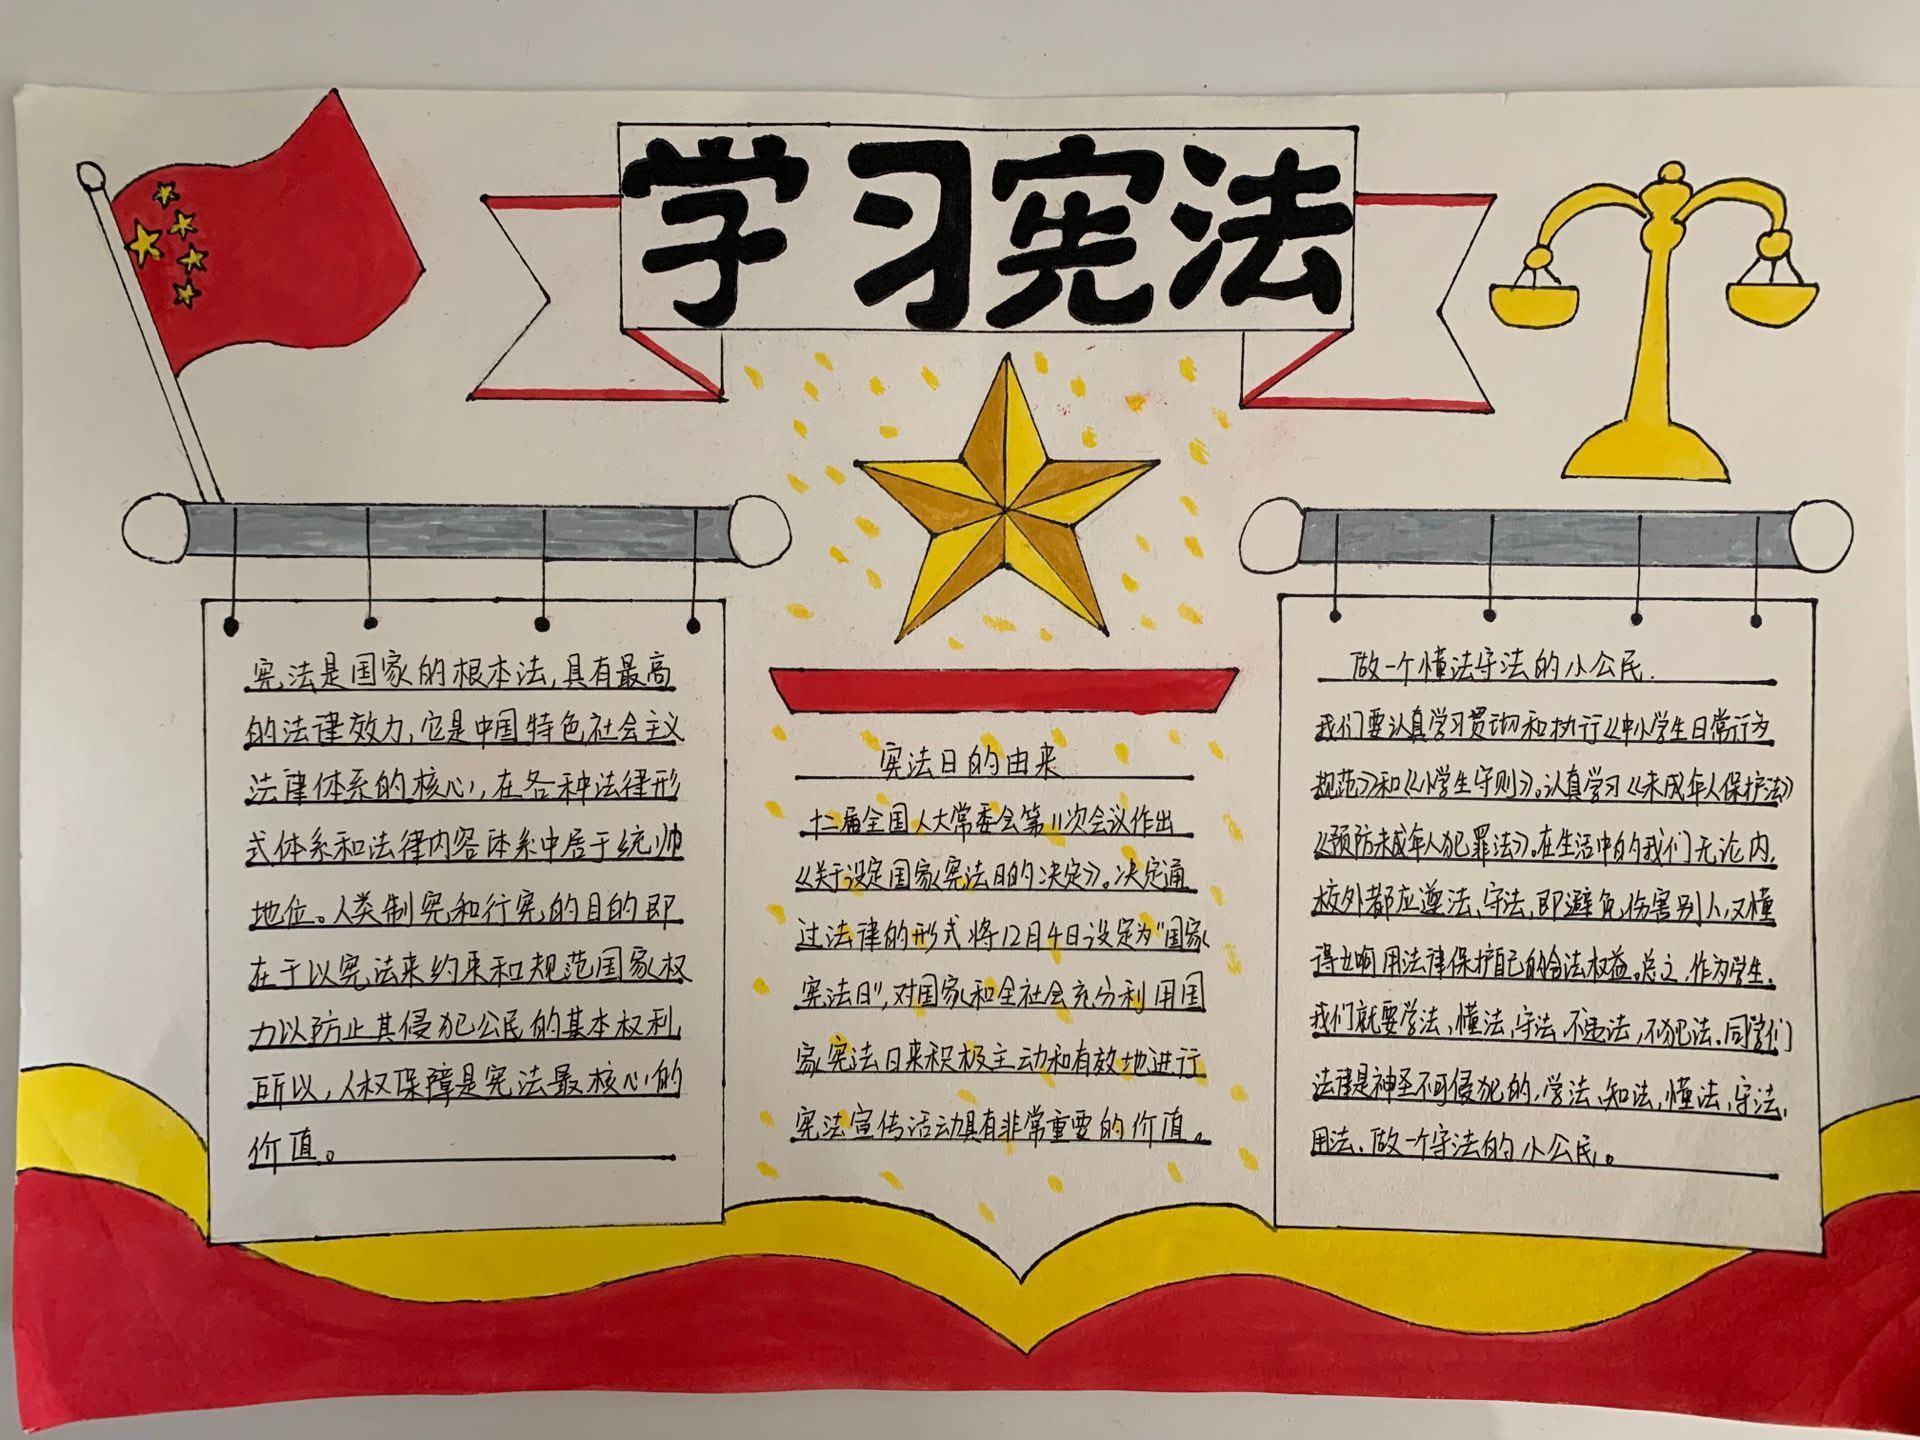 学习宪法
宪法是国家的根本法,具有最高
的法律效力,它是中国特色社会主义
法律体系的核心,在各种法律形
式体系和法律内容体系中居于统帅
地位。人类制宪和行宪的目的即
在于以宪法来约束和规范国家权
力以防止其侵犯公民的基本权利
所以,人权保障是宪法最核心的
价值。
宪法日的由来
十二届全国人大常委会第11次会议作出
《关于设定国家宪法日的决定》。决定通
过法律的形式将12月4日设定为"国家
宪法日",对国家和全社会充分利用国
家宪法日来积极主动和有效地进行
宪法宣传活动具有非常重要的价值。
做一个懂法守法的小公民.
我们要认真学习贯彻和执行《中小学生日常行为
规范》和《小学生守则》。认真学习《未成年人保护法》
《预防未成年人犯罪法》。在生活中的我们无论内,
校外都应遵法、守法,即避免伤害别人,又懂
得如何用法律保护自己的合法权益。总之,作为学生,
我们就要学法、懂法、守法、不违法,不犯法.同学们
法律是神圣不可侵犯的,学法、知法,懂法,守法,
用法、做一个守法的小公民。